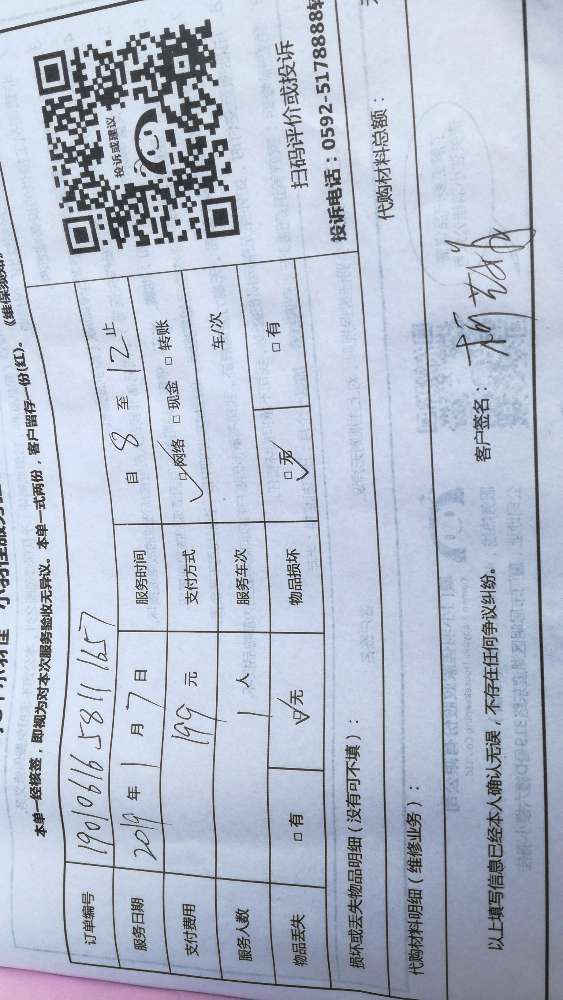 本单一经核签，即视为对本次服务验收无异议。本单一式两份，客户留存一份(红)。
订单编号 1901061658111657
服务日期 2019 年 1 月 7 日 服务时间 自 8 至 12 止
支付费用 199 元 支付方式 ☑网络 □现金 □转账
服务人数 1 人 服务车次 车/次
物品丢失 □有 ☑无 物品损坏 ☑无 □有
投诉或建议
扫码评价或投诉
投诉电话：0592-5178888转
损坏或丢失物品明细（没有可不填）：
代购材料明细（维修业务）： 代购材料总额：
以上填写信息已经本人确认无误，不存在任何争议纠纷。 客户签名：